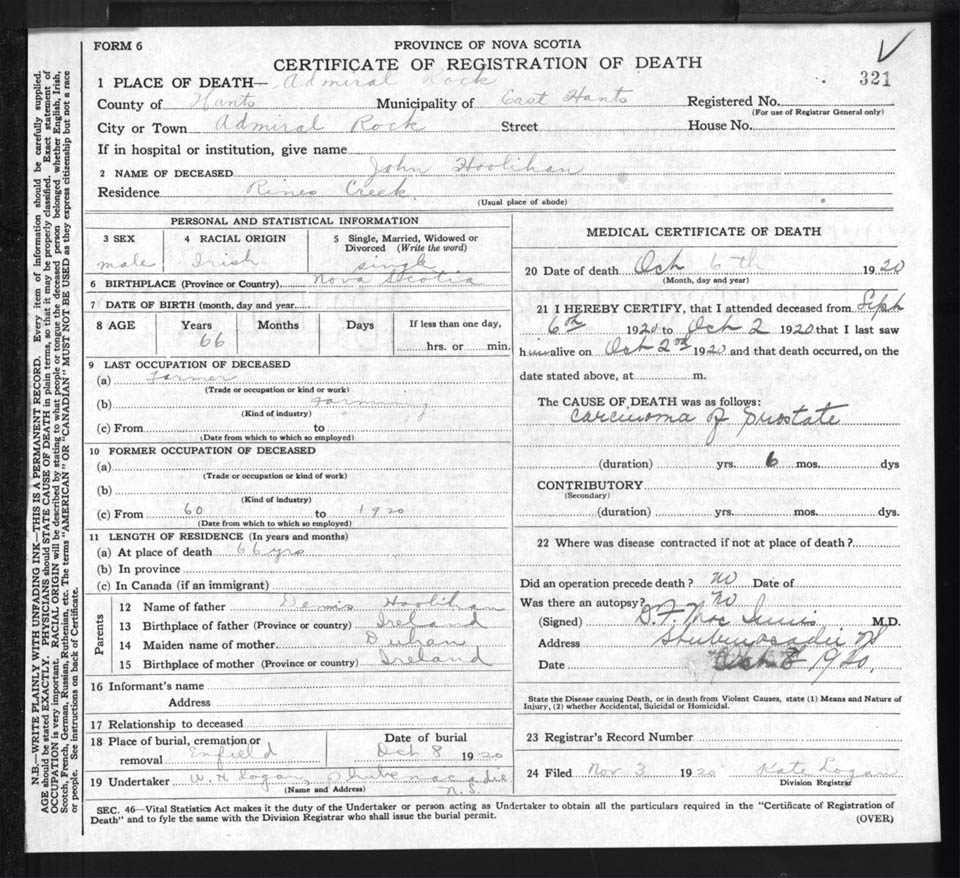 FORM 6
PROVINCE OF NOVA SCOTIA
CERTIFICATE OF REGISTRATION OF DEATH
321
1 PLACE OF DEATH— Admiral Rock
County of Hants Municipality of East Hants Registered No.
(For use of Registrar General only)
City or Town Admiral Rock Street House No.
If in hospital or institution, give name
2 NAME OF DECEASED John Hoolihan
Residence Rines Creek
(Usual place of abode)
PERSONAL AND STATISTICAL INFORMATION
3 SEX 4 RACIAL ORIGIN 5 Single, Married, Widowed or
Divorced (Write the word)
male Irish single
6 BIRTHPLACE (Province or Country) Nova Scotia
7 DATE OF BIRTH (month, day and year)
8 AGE Years Months Days If less than one day,
66 hrs. or min.
9 LAST OCCUPATION OF DECEASED
(a) Farmer
(Trade or occupation or kind or work)
(b) Farming
(Kind of industry)
(c) From to
(Date from which to which so employed)
10 FORMER OCCUPATION OF DECEASED
(a)
(Trade or occupation or kind of work)
(b)
(Kind of industry)
(c) From 60 to 1920
(Date from which to which so employed)
11 LENGTH OF RESIDENCE (In years and months)
(a) At place of death 66 yrs
(b) In province
(c) In Canada (if an immigrant)
Parents
12 Name of father Denis Hoolihan
13 Birthplace of father (Province or country) Ireland
14 Maiden name of mother
15 Birthplace of mother (Province or country) Ireland
16 Informant's name
Address
17 Relationship to deceased
18 Place of burial, cremation or Date of burial
removal Enfield Oct 8 1920
19 Undertaker W. H Logan, Shubenacadie
(Name and Address) N.S.
MEDICAL CERTIFICATE OF DEATH
20 Date of death Oct 6th 1920
(Month, day and year)
21 I HEREBY CERTIFY, that I attended deceased from Sept
6th 1920 to Oct 2 1920 that I last saw
him alive on Oct 2nd 1920 and that death occurred, on the
date stated above, at m.
The CAUSE OF DEATH was as follows:
Carcinoma of prostate
(duration) yrs. 6 mos. dys
CONTRIBUTORY
(Secondary)
(duration) yrs. mos. dys.
22 Where was disease contracted if not at place of death?
Did an operation precede death? no Date of
Was there an autopsy? no
(Signed) D. F. Mac Innis M.D.
Address Shubenacadie NS
Date Oct 8 1920.
State the Disease causing Death, or in death from Violent Causes, state (1) Means and Nature of
Injury, (2) whether Accidental, Suicidal or Homicidal.
23 Registrar's Record Number
24 Filed Nov 3 1920 Kate Logan
Division Registrar
SEC. 46—Vital Statistics Act makes it the duty of the Undertaker or person acting as Undertaker to obtain all the particulars required in the "Certificate of Registration of
Death" and to fyle the same with the Division Registrar who shall issue the burial permit.
(OVER)
N.B.—WRITE PLAINLY WITH UNFADING INK—THIS IS A PERMANENT RECORD. Every item of information should be carefully supplied.
AGE should be stated EXACTLY. PHYSICIANS should STATE CAUSE OF DEATH in plain terms, so that it may be properly classified. Exact statement of
OCCUPATION is very important. RACIAL ORIGIN will be described by stating to what people or tongue the deceased person belonged whether English, Irish,
Scotch, French, German, Russian, Ruthenian, etc. The terms "AMERICAN" OR "CANADIAN" MUST NOT BE USED as they express citizenship but not a race
or people. See instructions on back of Certificate.